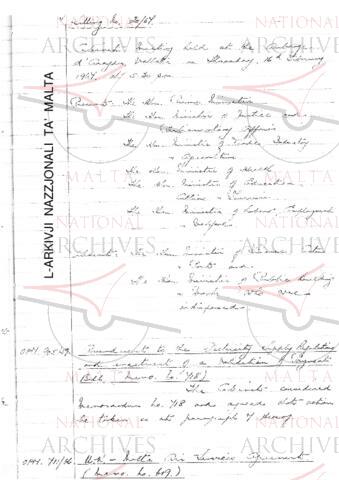 Meeting No. 20/67
Cabinet Meeting held at the Auberge
d'Aragon, Valletta on Thursday, 16th February
1967, at 5.30 pm
Present: The Hon. Prime Minister
The Hon. Minister of Justice and
Parliamentary Affairs
The Hon. Minister of Trade, Industry
& Agriculture
The Hon. Minister of Health
The Hon. Minister of Education,
Culture & Tourism
The Hon. Minister of Labour, Employment
& Welfare
Absent: The Hon. Minister of
& Ports and
The Hon. Minister of Public Building
& Works who was
indisposed
Amendments to the Electricity Supply Regulations
and enactment of a of Payment
(Memo. No. 718)
The Cabinet considered
Memorandum No. 718 and agreed that action
be taken as at paragraph 7 thereof
OPM. 711/66 U.K. - Malta Air Services Agreement
(Memo. No. 609)
L-ARKIVJI NAZZJONALI TA' MALTA
NATIONAL
ARCHIVES
MALTA